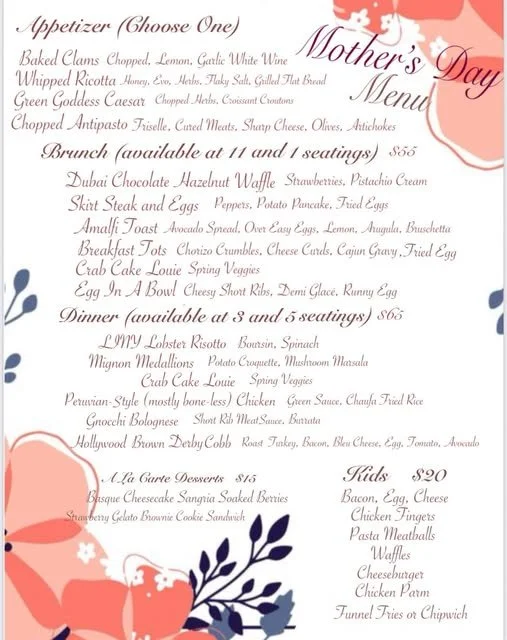 Mother's Day
Menu
Appetizer (Choose One)
Baked Clams Chopped, Lemon, Garlic White Wine
Whipped Ricotta Honey, Evo, Herbs, Flaky Salt, Grilled Flat Bread
Green Goddess Caesar Chopped Herbs, Croissant Croutons
Chopped Antipasto Friselle, Cured Meats, Sharp Cheese, Olives, Artichokes
Brunch (available at 11 and 1 seatings) $55
Dubai Chocolate Hazelnut Waffle Strawberries, Pistachio Cream
Skirt Steak and Eggs Peppers, Potato Pancake, Fried Eggs
Amalfi Toast Avocado Spread, Over Easy Eggs, Lemon, Arugula, Bruschetta
Breakfast Tots Chorizo Crumbles, Cheese Curds, Cajun Gravy, Fried Egg
Crab Cake Louie Spring Veggies
Egg In A Bowl Cheesy Short Ribs, Demi Glace, Runny Egg
Dinner (available at 3 and 5 seatings) $65
LINY Lobster Risotto Boursin, Spinach
Mignon Medallions Potato Croquette, Mushroom Marsala
Crab Cake Louie Spring Veggies
Peruvian-Style (mostly bone-less) Chicken Green Sauce, Chaufa Fried Rice
Gnocchi Bolognese Short Rib MeatSauce, Burrata
Hollywood Brown DerbyCobb Roast Turkey, Bacon, Bleu Cheese, Egg, Tomato, Avocado
A La Carte Desserts $15
Basque Cheesecake Sangria Soaked Beries
Strawberry Gelato Brownie Cookie Sandwich
Kids $20
Bacon, Egg, Cheese
Chicken Fingers
Pasta Meatballs
Waffles
Cheeseburger
Chicken Parm
Funnel Fries or Chipwich